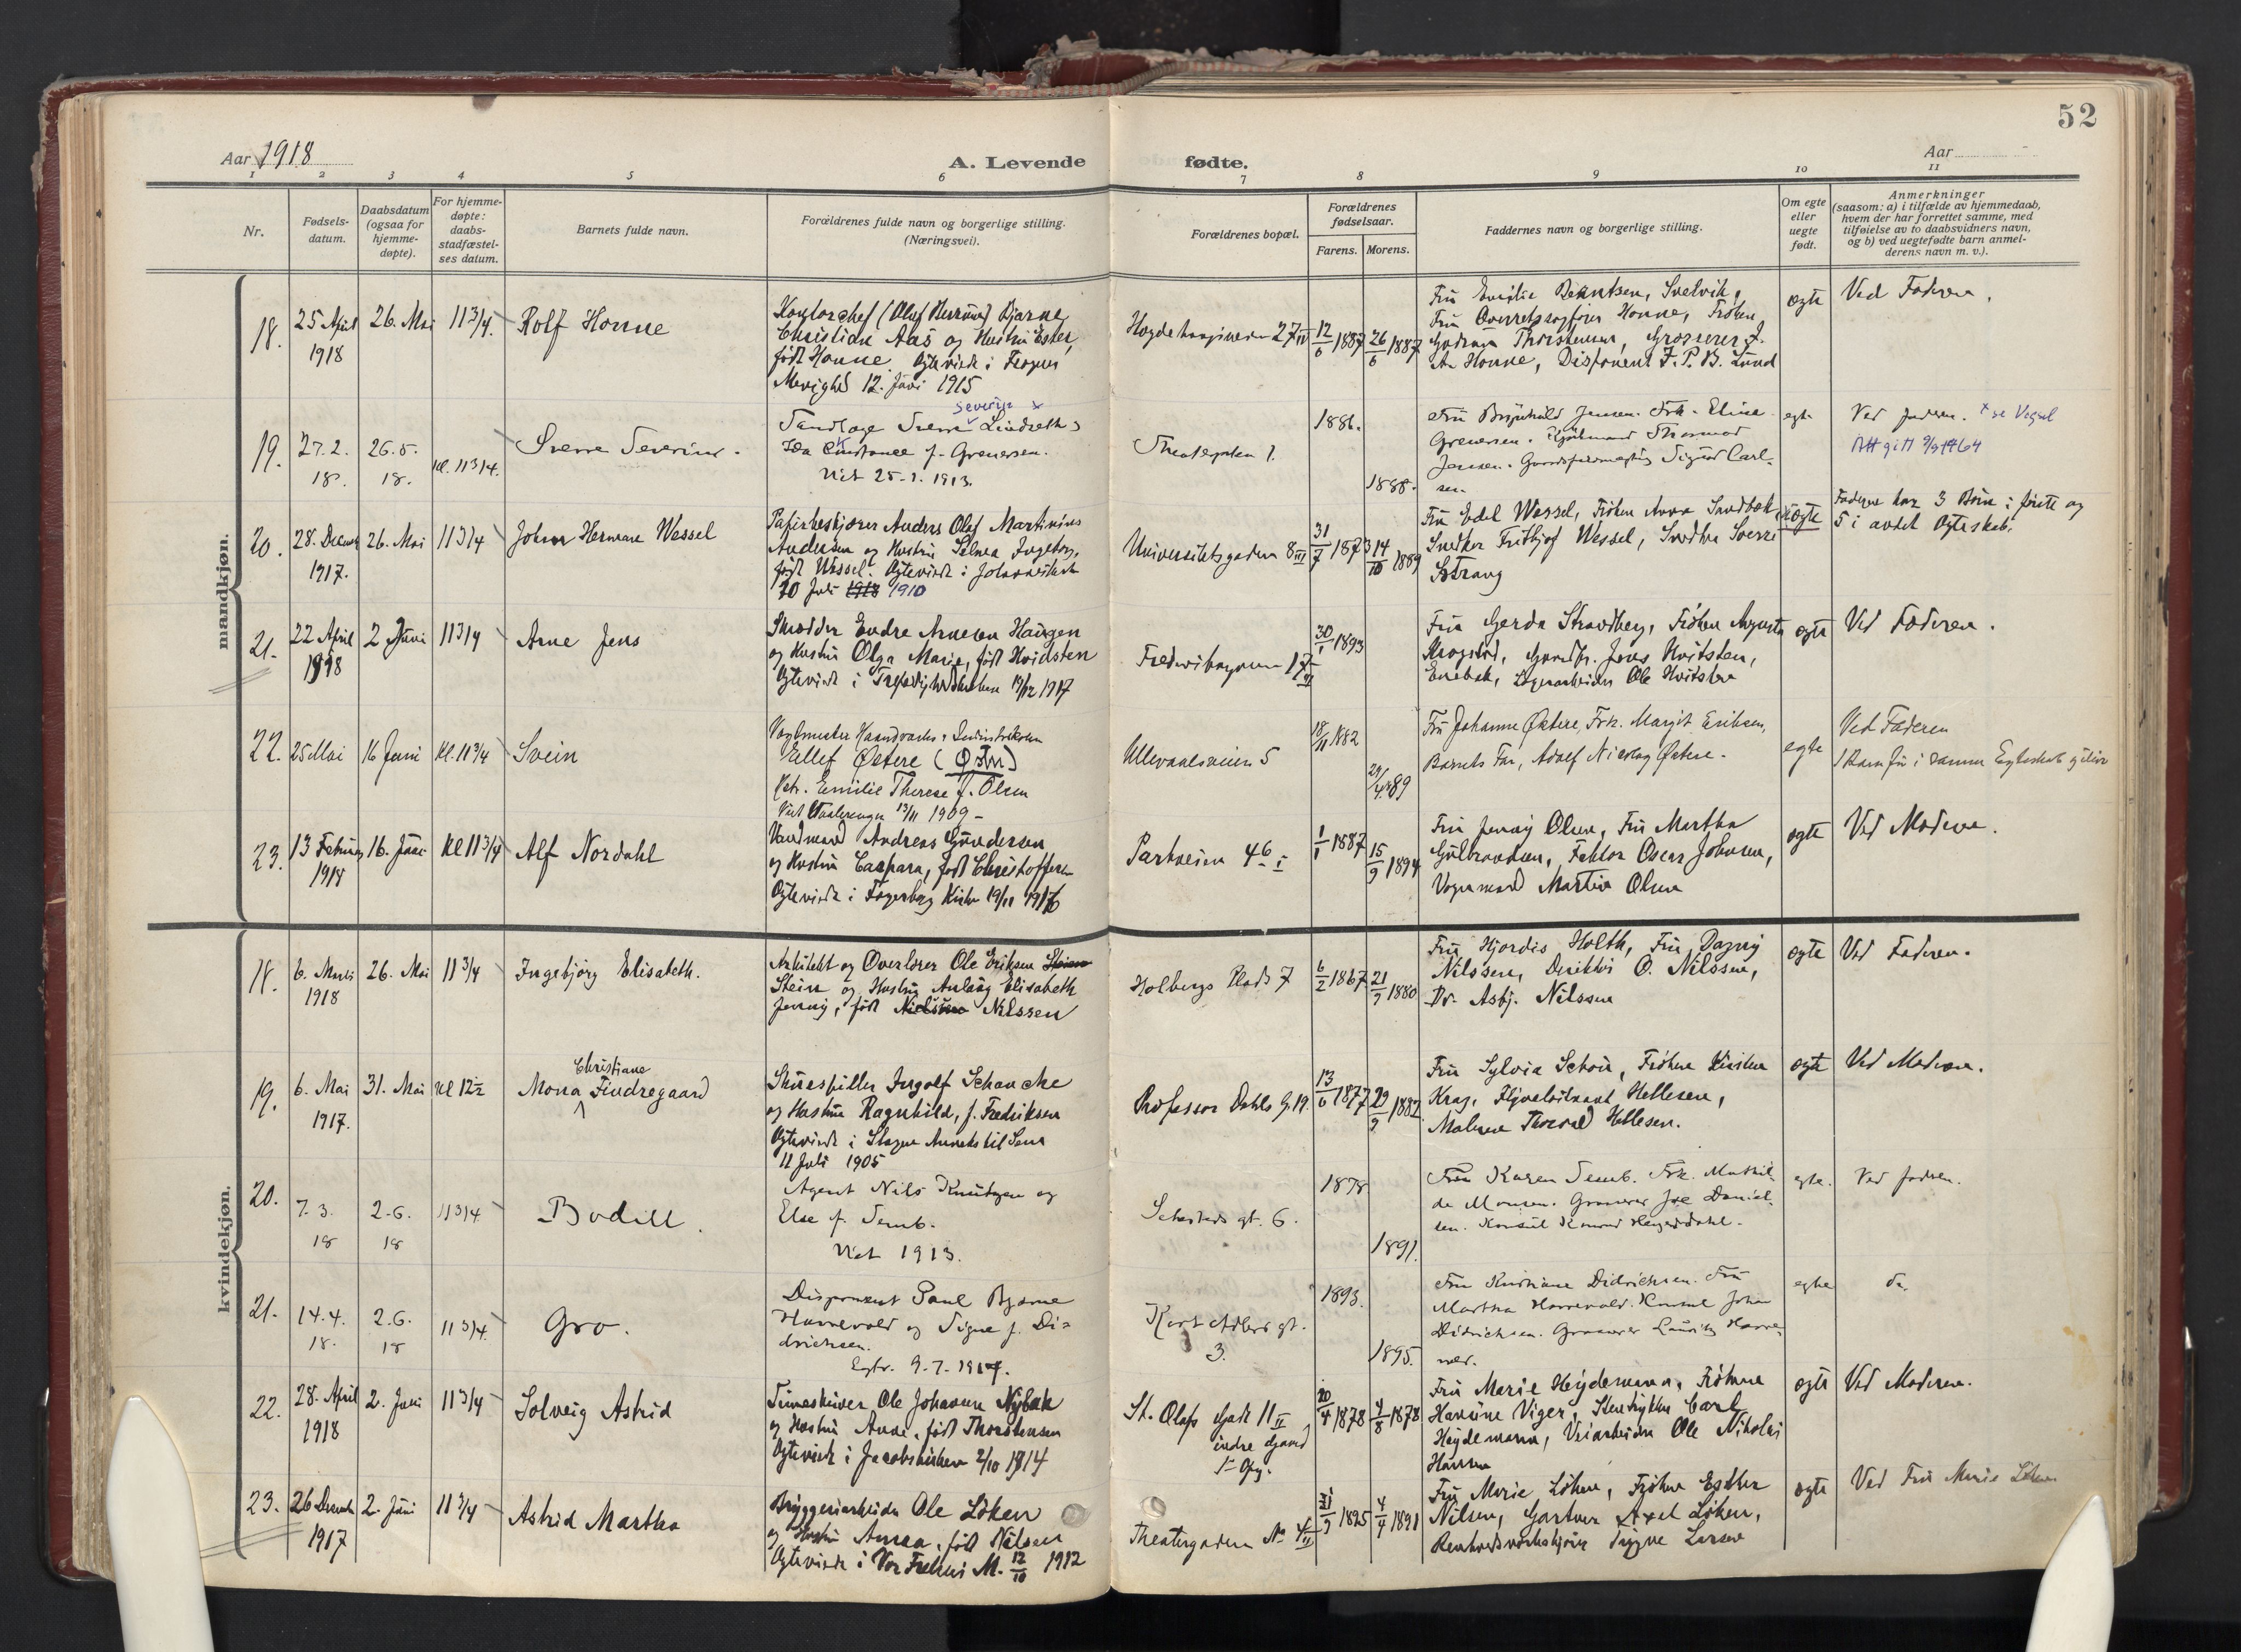 52
Aar 1918
A. Levende
fødte.
Aar
1 2 3 4 5 6 7 8 9 10 11
Nr.
Fødsels-
datum.
Daabsdatum
(ogsaa for
hjemme-
døpte).
For hjemme-
døpte:
daabs-
stadfæstel-
ses datum.
Barnets fulde navn.
Forældrenes fulde navn og borgerlige stilling.
(Næringsvei).
Forældrenes bopæl.
Forældrenes
fødselsaar.
Farens. Morens.
Faddernes navn og borgerlige stilling.
Om egte
eller
uegte
født.
Anmerkninger
(saasom: a) i tilfælde av hjemmedaab,
hvem der har forrettet samme, med
tilføielse av to daabsvidners navn,
og b) ved uegtefødte barn anmel-
derens navn m. v.).
mandkjøn.
18. 25 April 1918
26. Mai
11 3/4.
Rolf Honne
Kontorchef (Oluf) Bjarne
Christian Aas og Hustru Ester,
født Honne. Ægteviet i Frogner
Menighed 12. Juni 1915
27 IV
12/6 1887
26/6 1887
Fru Emilie Berntsen, Svelvik,
Fru Overretssagfører Honne, Frøken
Thorstensen, Grosserer J.
A. Honne, Disponent F. P. B. Lund
ægte
Ved Faderen.
19. 27.2. 18.
26.5. 18.
Kl. 11 3/4.
Sverre Severin.
Severin
Tandlæge Sverre Lindseth
Ida Constance f. Grenersen.
Viet 25-1. 1913.
Theatergaten 1.
1886.
1888.
Fru Brynhild Jensen. Frk. Eline
Grenersen. Kjøbmand Thormod
Jensen. Gaardsfuldmægtig Sigurd Carl-
sen.
egte
Ved faderen. x se Vegsel
20. 28. Decemb 1917.
26. Mai
11 3/4
Johan Herman Wessel
Papirbeskjærer Anders Olaf Martinius
Andersen og Hustru Selma Ingeborg,
født Wessel. Ægteviet i Johanneskirk
20 Juli 1918 1910
Universitetsgaden 8 III
31/7 1873
14/10 1889
Fru Edel Wessel, Frøken Anna Sandbæk,
Snedker Fridtjof Wessel, Snedker Sverre
Strang
ægte
Faderen har 3 Børn i første og
5 i andet Ægteskab.
21. 22 April 1918
2 Juni
11 3/4
Arne Jens
Skrædder Endre Arnesen Haugen
og Hustru Olga Marie, født Hvidsten
Ægteviet i Trefoldighedskirken 19/12 1917
17
30/1 1893
Fru Gerda Strandberg, Frøken Augusta
Krogstad, Gaardbr. Jens Hvitsten,
Enebak, Lagerarbeider Ole Hvitsten
ægte
Ved Faderen.
22. 25 Mai
16 Juni
Kl. 11 3/4
Svein
Ellef Østere (Østre)
Petr. Emilie Therese f. Olsen
Viet Vaalerengen 13/11 1909 -
Ullevaalsveien 5
18/11 1882
29/4 89
Fru Johanne Østere, Frk. Margit Eriksen,
Barnets Far, Adolf Nicolay Østere.
egte
Ved Faderen
1 Barn før i samme Egteskab
23. 13 Februar 1918
16. Juni
Kl 11 3/4
Alf Nordahl
Andreas Gundersen
og Hustru Caspara, født Christoffersen
Ægteviet i Fagerborg Kirke 19/11 1916
Parkveien 46 I
1/1 1887
15/9 1894
Fru Jenny Olsen, Fru Martha
Gulbrandsen, Faktor Oscar Johnsen,
Vognmand Martin Olsen
ægte
Ved Moderen.
kvindekjøn.
18. 6. Marts 1918
26. Mai
11 3/4
Ingebjørg Elisabeth.
Arkitekt og Overlærer Ole Eriksen
Stein og Hustru Aslaug Elisabeth
Jenny, født Nielssen Nilssen
Holbergs Plads 7
6/2 1867
21/9 1880
Fru Hjordis Holth, Fru Dagny
Nilssen, Direktør O. Nilssen,
Dr. Asbj. Nilssen
ægte
Ved Faderen.
19. 6. Mai 1917.
31. Mai
Kl 12 1/2
Christiane
Mona Findregaard
Skuespiller Ingolf Schanche
og Hustru Ragnhild, f. Fredriksen
Ægteviet i Slagen Annekskil Sem
11 Juli 1905
Professor Dahls G. 19.
13/6 1877
29/9 1882
Fru Sylvia Schou, Frøken Kirsten
Krag, Flyveløitnant Hellesen,
Maleren Thorvald Hellesen.
ægte
Ved Moderen.
20. 7.3. 18
2-6. 18
11 3/4
Bodill.
Agent Nils Knutzen og
Else f. Semb.
Viet 1913.
Schesteds gt. 6.
1878
1891.
Fru Karen Semb. Frk. Mathil-
de Monsen. Grosserer Joe Daniel-
sen. Konsul Konrad
egte.
Ved faderen.
21. 14.4. 18.
2.6. 18
11 3/4.
Gro.
Disponent Paul Bjarne
Harrevold og Signe f. Di-
drichsen.
Egtv. 9-7-1917.
Kort Adlers gt.
3.
1893.
1895.
Fru Kristiane Didrichsen. Fru
Martha Harrevold. Konsul Johan
Didrichsen. Grosserer Lauritz Harre-
vold.
egte
do.
22. 28. April 1918
2. Juni
11 3/4
Solveig Astrid
Timeskriver Ole Johansen Nybak
og Hustru Anna, født Thorstensen
Ægteviet i Jacobskirken 2/10 1914
St. Olafs Gade 11 II
indre Gaard
1ste Opg.
20/4 1878
4/8 1878
Fru Marie Heydemann, Frøken
Hansine Viger, Stentrykker Carl
Heydemann, Veiarbeider Ole Nikolai
Hansen
ægte
Ved Moderen.
23. 26 Decemb 1917
2. Juni
11 3/4
Astrid Martha
Bryggeriarbeider Ole Løken
og Hustru Anna, født Nilsen
Ægteviet i Vor Frelsers M. 12/10 1912
Theatergaden No
21/9 1895
4/4 1891
Fru Marie Løken, Frøken Esther
Nilsen, Gartner Axel Løken,
Renholdsverkskjører Trygve Larsen
ægte
Ved Fru Marie Løken